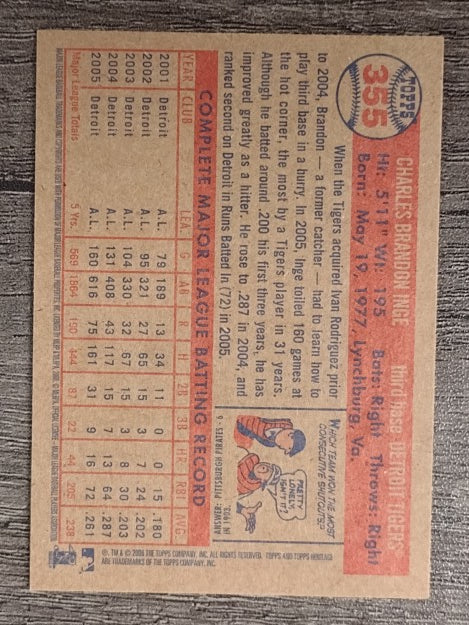 TOPPS
355
CHARLES BRANDON INGE third base DETROIT TIGERS
Ht: 5'11" Wt: 195 Bats: Right Throws: Right
Born: May 19, 1977, Lynchburg, Va.
When the Tigers acquired Ivan Rodriguez prior
to 2004, Brandon — a former catcher — had to learn how to
play third base in a hurry. In 2005, Inge toiled 160 games at
the hot corner, the most by a Tigers player in 31 years.
Although he batted around .200 his first three years, he has
improved greatly as a hitter. He rose to .287 in 2004, and
ranked second on Detroit in Runs Batted In (72) in 2005.
WHICH TEAM WON THE MOST
CONSECUTIVE SHUTOUTS?
PRETTY
LONELY,
ISN'T IT?
ANSWER:
6 - PITTSBURGH PIRATES
IN 1903.
COMPLETE MAJOR LEAGUE BATTING RECORD
YEAR CLUB LEA. G AB R H 2B 3B HR RBI AVG.
2001 Detroit A.L. 79 189 13 34 11 0 0 15 .180
2002 Detroit A.L. 95 321 27 65 15 3 7 24 .202
2003 Detroit A.L. 104 330 32 67 15 3 8 30 .203
2004 Detroit A.L. 131 408 43 117 15 7 13 64 .287
2005 Detroit A.L. 160 616 75 161 31 9 16 72 .261
Major League Totals 5 Yrs. 569 1864 190 444 87 22 44 205 .238
®, TM & © 2006 THE TOPPS COMPANY, INC. ALL RIGHTS RESERVED. TOPPS AND TOPPS HERITAGE
ARE TRADEMARKS OF THE TOPPS COMPANY, INC.